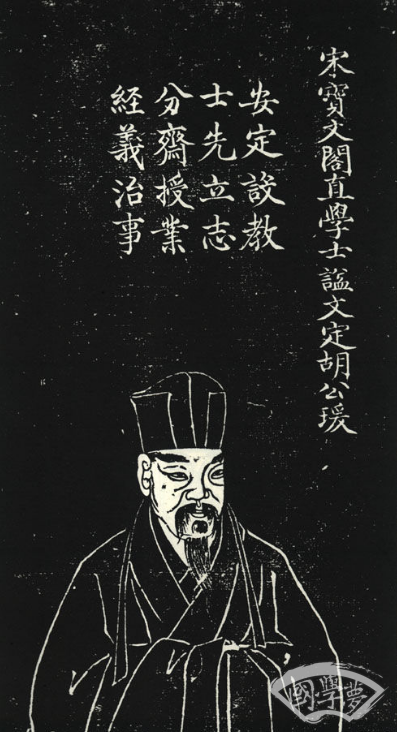 宋寳文閣直學士諡文定胡公瑗
安定設教
士先立志
分齋授業
經義治事
國學夢